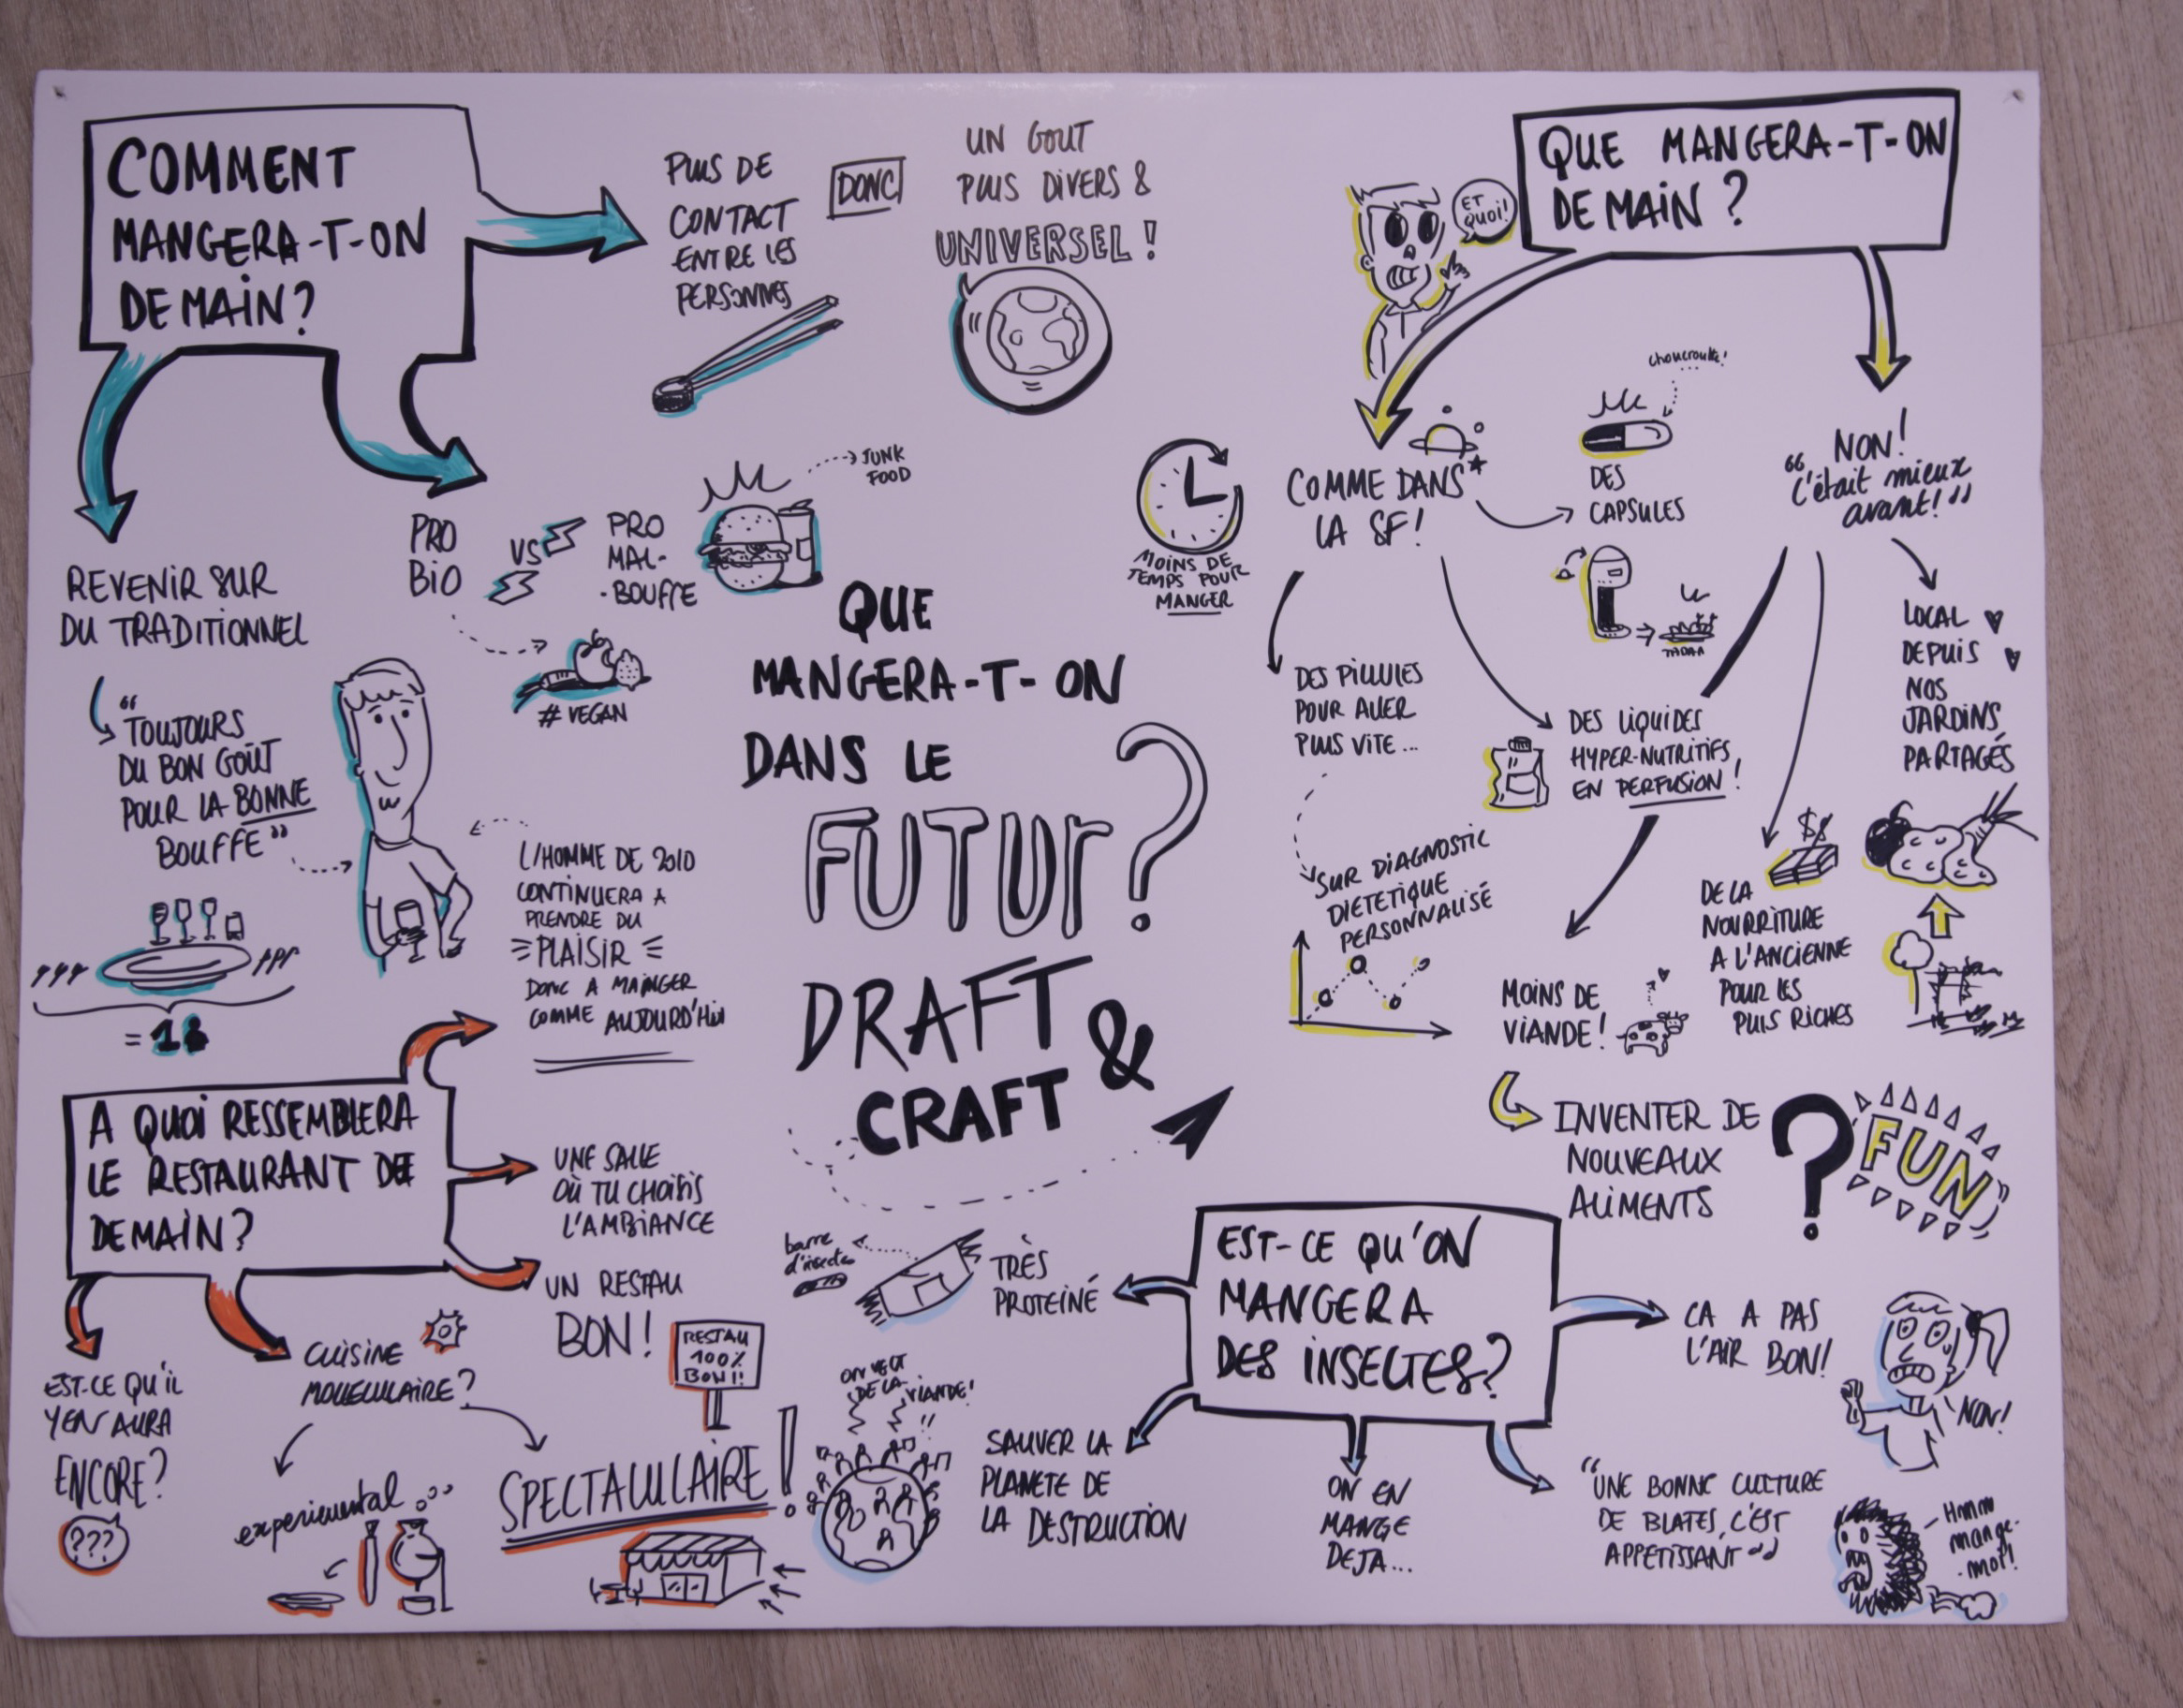 COMMENT
MANGERA-T-ON
DEMAIN?
PLUS DE
CONTACT
ENTRE LES
PERSONNES
DONC
UN GOUT
PLUS DIVERS &
UNIVERSEL!
REVENIR SUR
DU TRADITIONNEL
"TOUJOURS
DU BON GOÛT
POUR LA BONNE
BOUFFE"
PRO
BIO
VS
PRO
MAL-
-BOUFFE
JUNK
FOOD
# VEGAN
L'HOMME DE 2010
CONTINUERA A
PRENDRE DU
PLAISIR
DONC A MANGER
COMME AUJOURD'HUI
QUE
MANGERA-T-ON
DANS LE
FUTUR?
DRAFT &
CRAFT
QUE MANGERA-T-ON
DEMAIN?
ET
QUOI!
COMME DANS*
LA SF!
MOINS DE
TEMPS POUR
MANGER
choucroute!
DES
CAPSULES
TADAA
DES PILLULES
POUR ALLER
PLUS VITE...
SUR DIAGNOSTIC
DIETETIQUE
PERSONNALISÉ
DES LIQUIDES
HYPER-NUTRITIFS
EN PERFUSION!
NON!
"C'était mieux
avant!"
LOCAL
DEPUIS
NOS
JARDINS
PARTAGÉS
$$
DE LA
NOURRITURE
A L'ANCIENNE
POUR LES
PLUS RICHES
MOINS DE
VIANDE!
INVENTER DE
NOUVEAUX
ALIMENTS
?
FUN
A QUOI RESSEMBLERA
LE RESTAURANT DE
DEMAIN?
UNE SALLE
OÙ TU CHOISIS
L'AMBIANCE
UN RESTAU
BON!
RESTAU
100%
BON!!
CUISINE
MOLECULAIRE?
experimental
SPECTACULAIRE!
EST-CE QU'IL
Y EN AURA
ENCORE?
???
EST-CE QU'ON
MANGERA
DES INSECTES?
TRÈS
PROTEINÉ
barre
d'insectes
ON VEUT
DE LA VIANDE!
!!
SAUVER LA
PLANETE DE
LA DESTRUCTION
ON EN
MANGE
DEJA...
"UNE BONNE CULTURE
DE BLATES, C'EST
APPETISSANT"
CA A PAS
L'AIR BON!
NON!
Hmm
mange-
-moi!